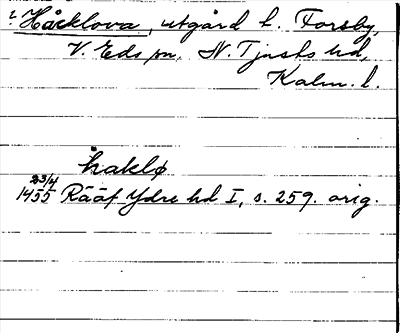 ? Håcklova, utgård t. Forsby,
V. Eds sn. N. Tjusts hd,
Kalm. l.
haklø
23/4
1455 Rääf Ydre hd I, s. 259. orig.